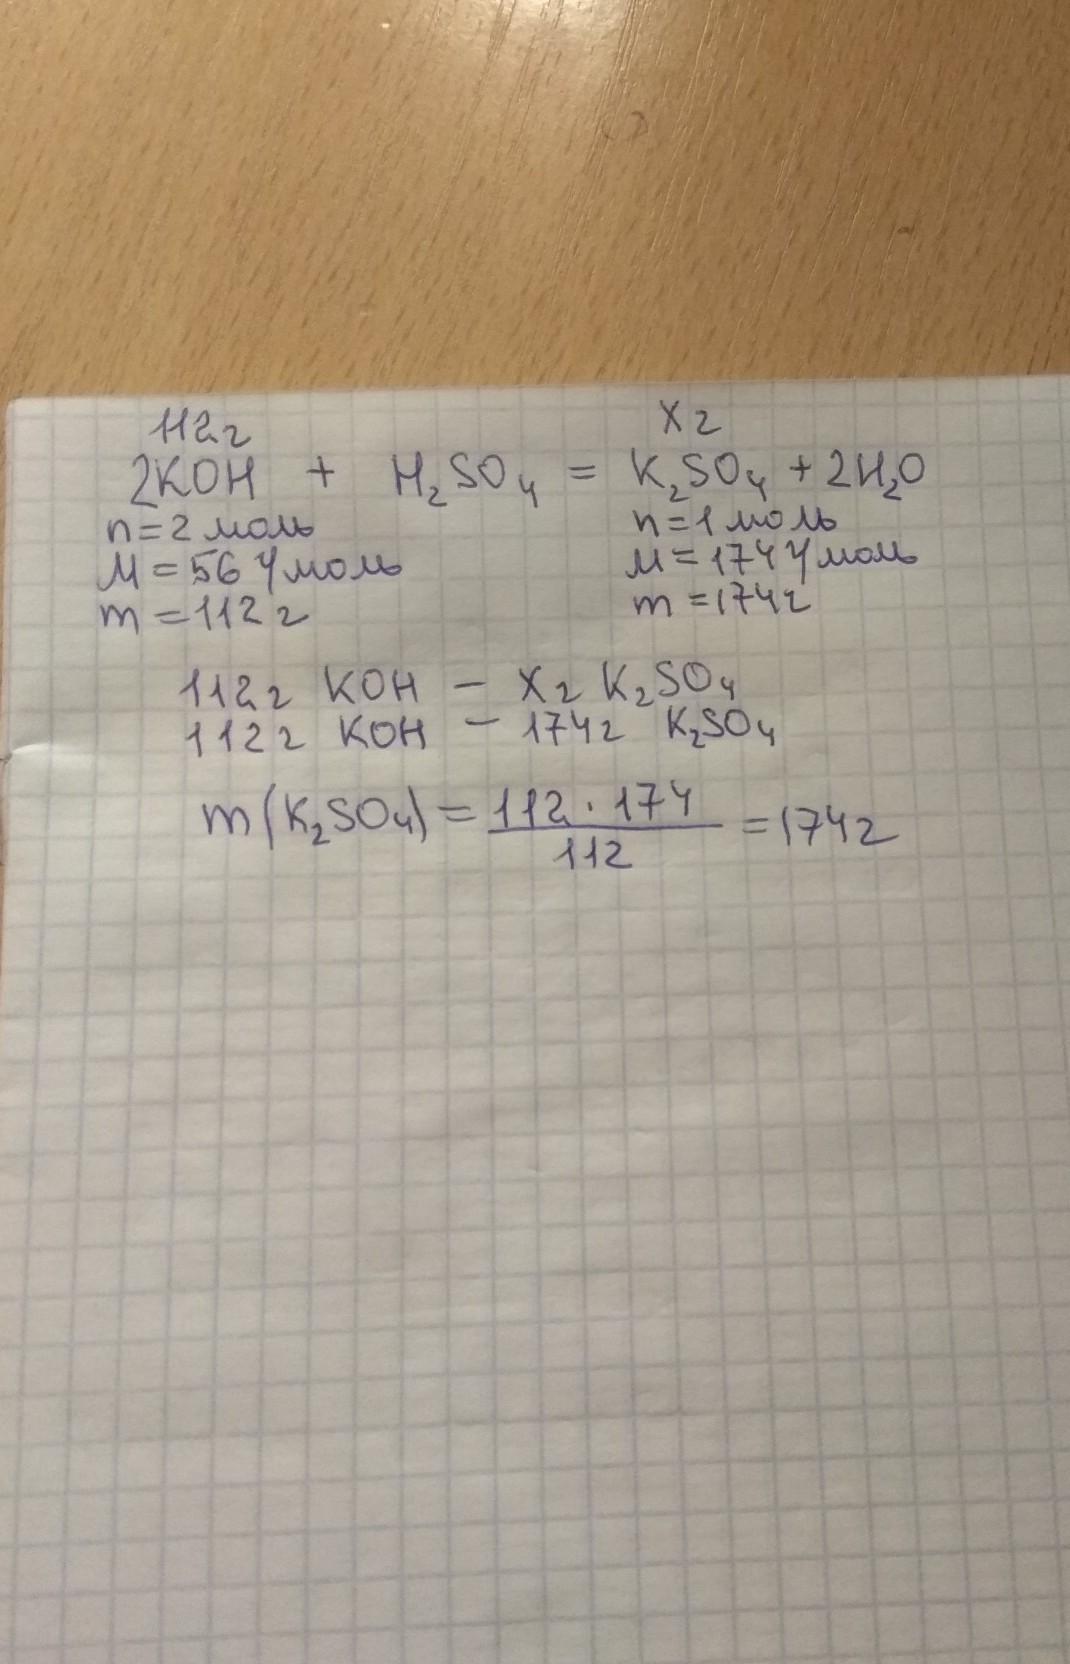 112г x г
2KOH + H₂SO₄ = K₂SO₄ + 2H₂O
n=2 моль n=1 моль
M=56 г/моль M=174 г/моль
m=112 г m=174г
112г KOH – x г K₂SO₄
112г KOH – 174г K₂SO₄
m(K₂SO₄) = 112 · 174 / 112 = 174г